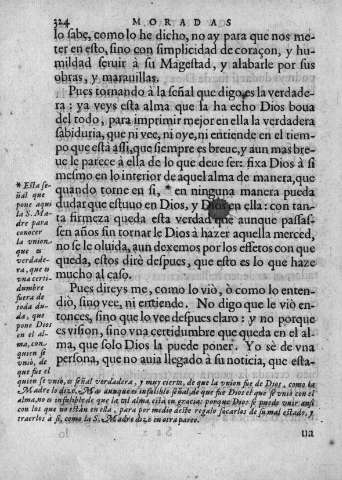 324 MORADAS
lo sabe, como lo he dicho, no ay para que nos me-
ter en esto, sino con simplicidad de coraçon, y hu-
mildad seruir à su Magestad, y alabarle por sus
obras, y marauillas.
Pues tornando à la señal que digo, es la verdade-
ra: ya veys esta alma que la ha echo Dios boua
del todo, para imprimir mejor en ella la verdadera
sabiduria, que ni vee, ni oye, ni entiende en el tiem-
po que està assi, que siempre es breue, y aun mas bre-
ue le parece à ella de lo que deue ser: fixa Dios à si
mesmo en lo interior de aquel alma de manera, que
quando torne en si, * en ninguna manera pueda
dudar que estuuo en Dios, y Dios en ella: con tan-
ta firmeza queda esta verdad que aunque passas-
sen años sin tornarle Dios à hazer aquella merced,
no se le oluida, aun dexemos por los effetos con que
queda, estos dirè despues, que esto es lo que haze
mucho al caso.
Pues direys me, como lo viò, ò como lo enten-
diò, sino vee, ni entiende. No digo que le viò en-
tonces, sino que lo vee despues claro: y no porque
es vision, sino vna certidumbre que queda en el al-
ma, que solo Dios la puede poner. Yo sè de vna
persona, que no auia llegado à su noticia, que esta-
* Esta se-
ñal que
pone aqui
la S. Ma-
dre para
conocer
la vnion,
que es
verdade-
ra, que es
vna certi-
dumbre
fuera de
toda du-
da, que
pone Dios
en el al-
ma, con
quien se
viò, de
que fue el
quien se vniò, es señal verdadera, y muy cierta, de que la vnion fue de Dios, como la
Madre lo dize. Mas aunque es infalible señal, de que fue Dios el que se vniò con el
alma, no es infalible de que la tal alma està en gracia: porque Dios se puede vnir ansi
con los que no estàn en ella, para por medio deste regalo sacarlos de su mal estado, y
traerlos à si, como la S. Madre dize en otra parte.
ua